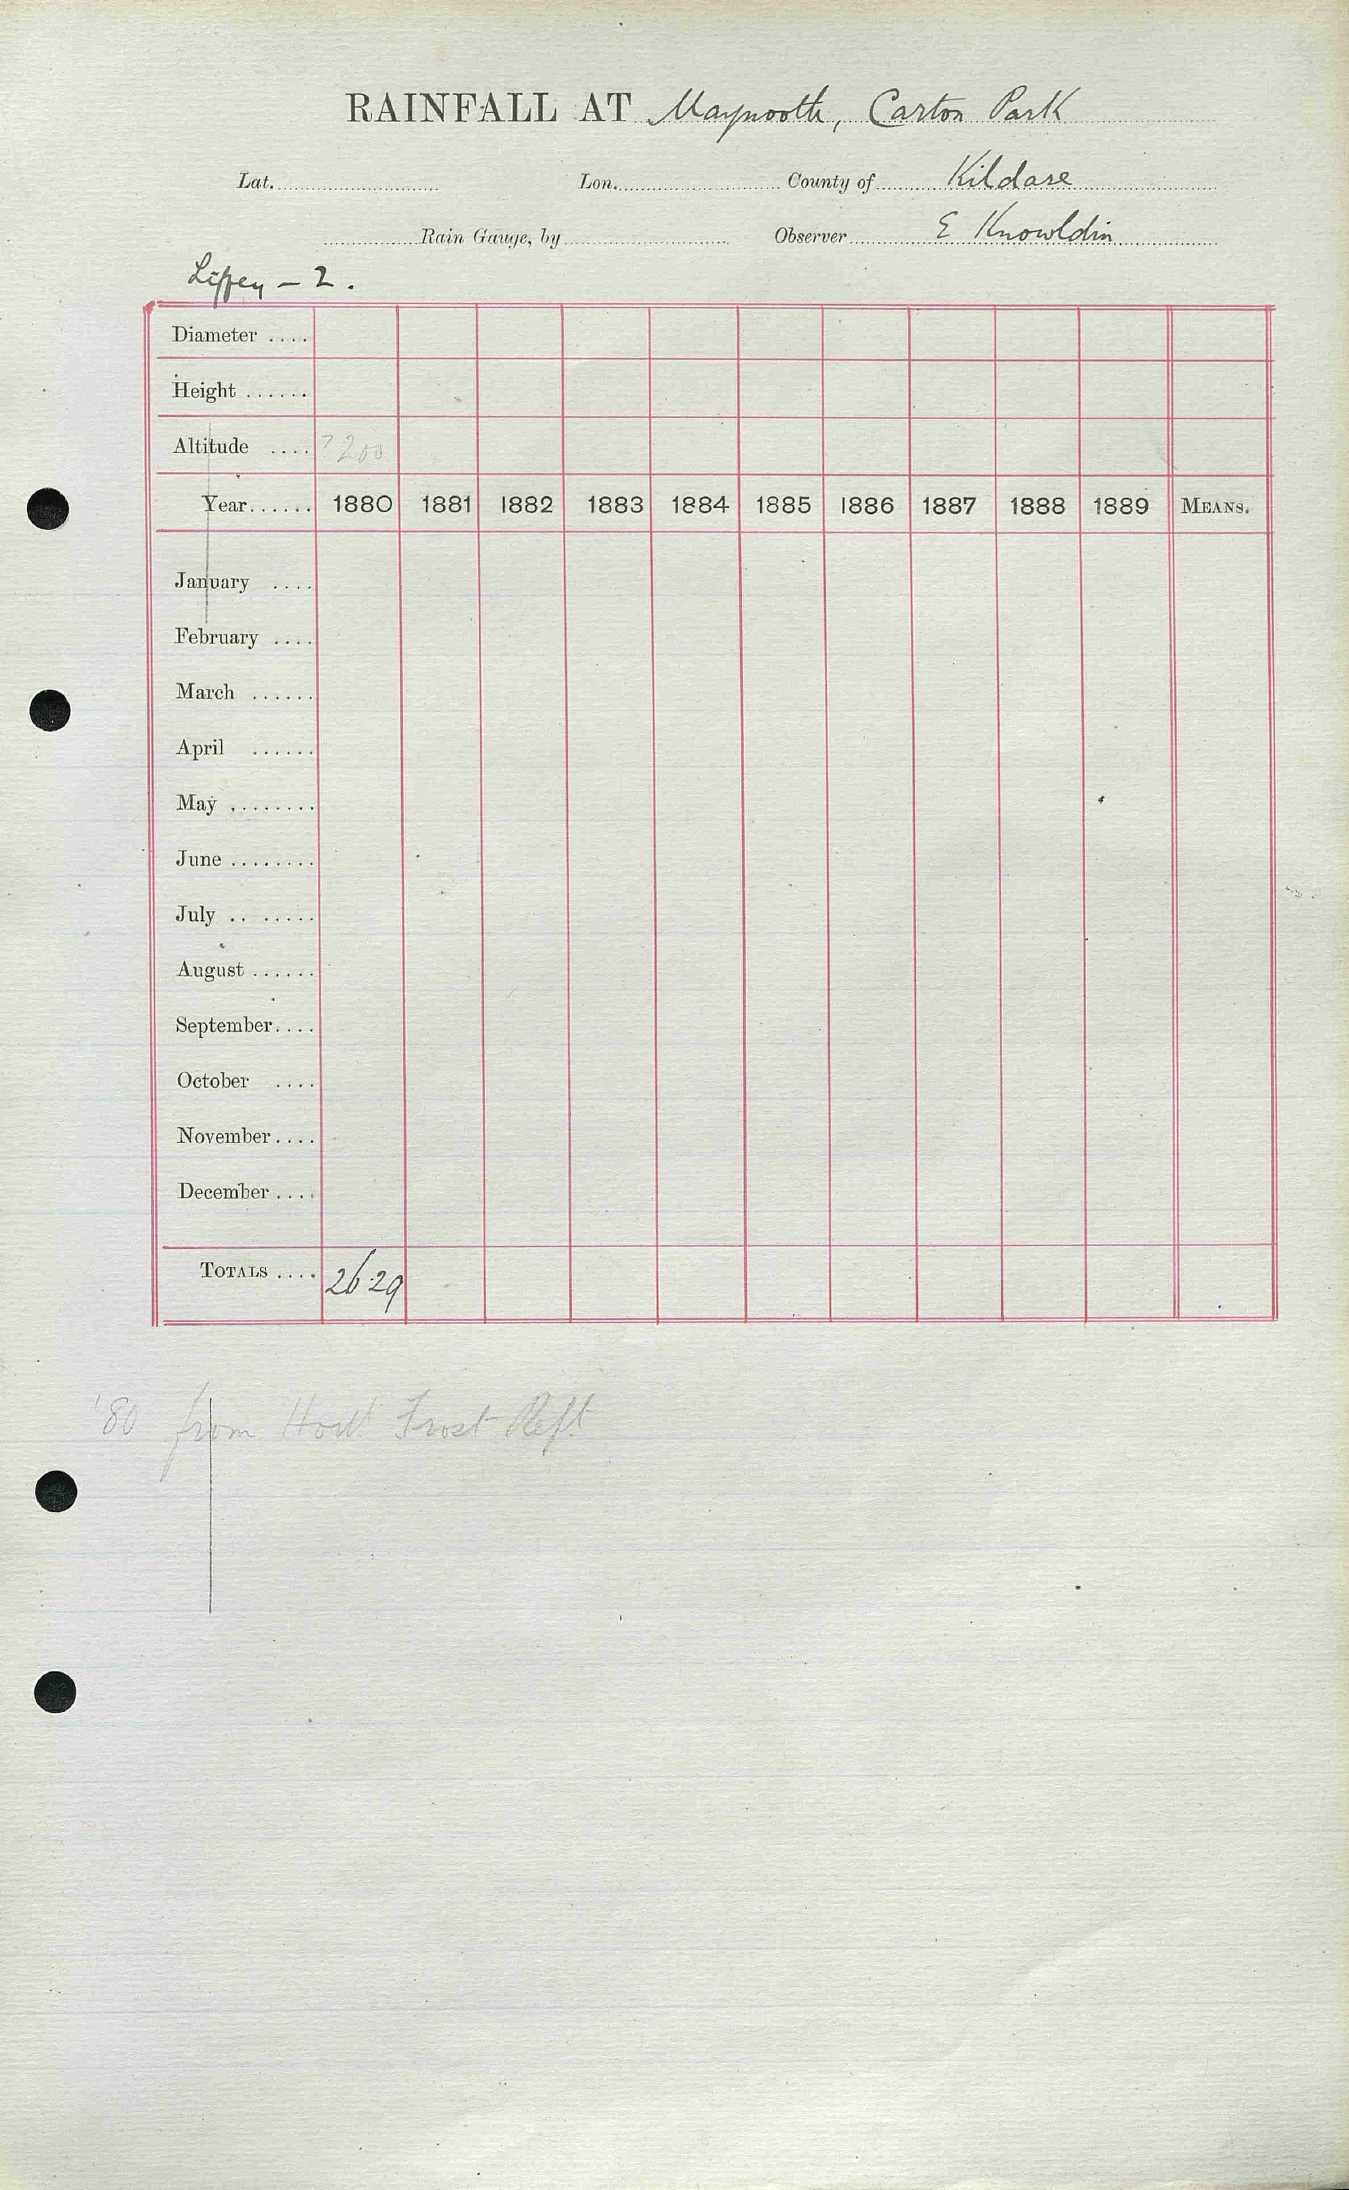 RAINFALL AT Maynooth, Carton Park
Lat. Lon. County of Kildare
Rain Gauge, by Observer E Knowldin
Liffey – 2.
Diameter ....
Height ......
Altitude .... ? 200
Year...... 1880 1881 1882 1883 1884 1885 1886 1887 1888 1889 MEANS.
January ....
February ....
March ......
April ......
May ........
June ........
July .. ......
August ......
September....
October ....
November....
December....
TOTALS .... 26.29
'80 from Frost